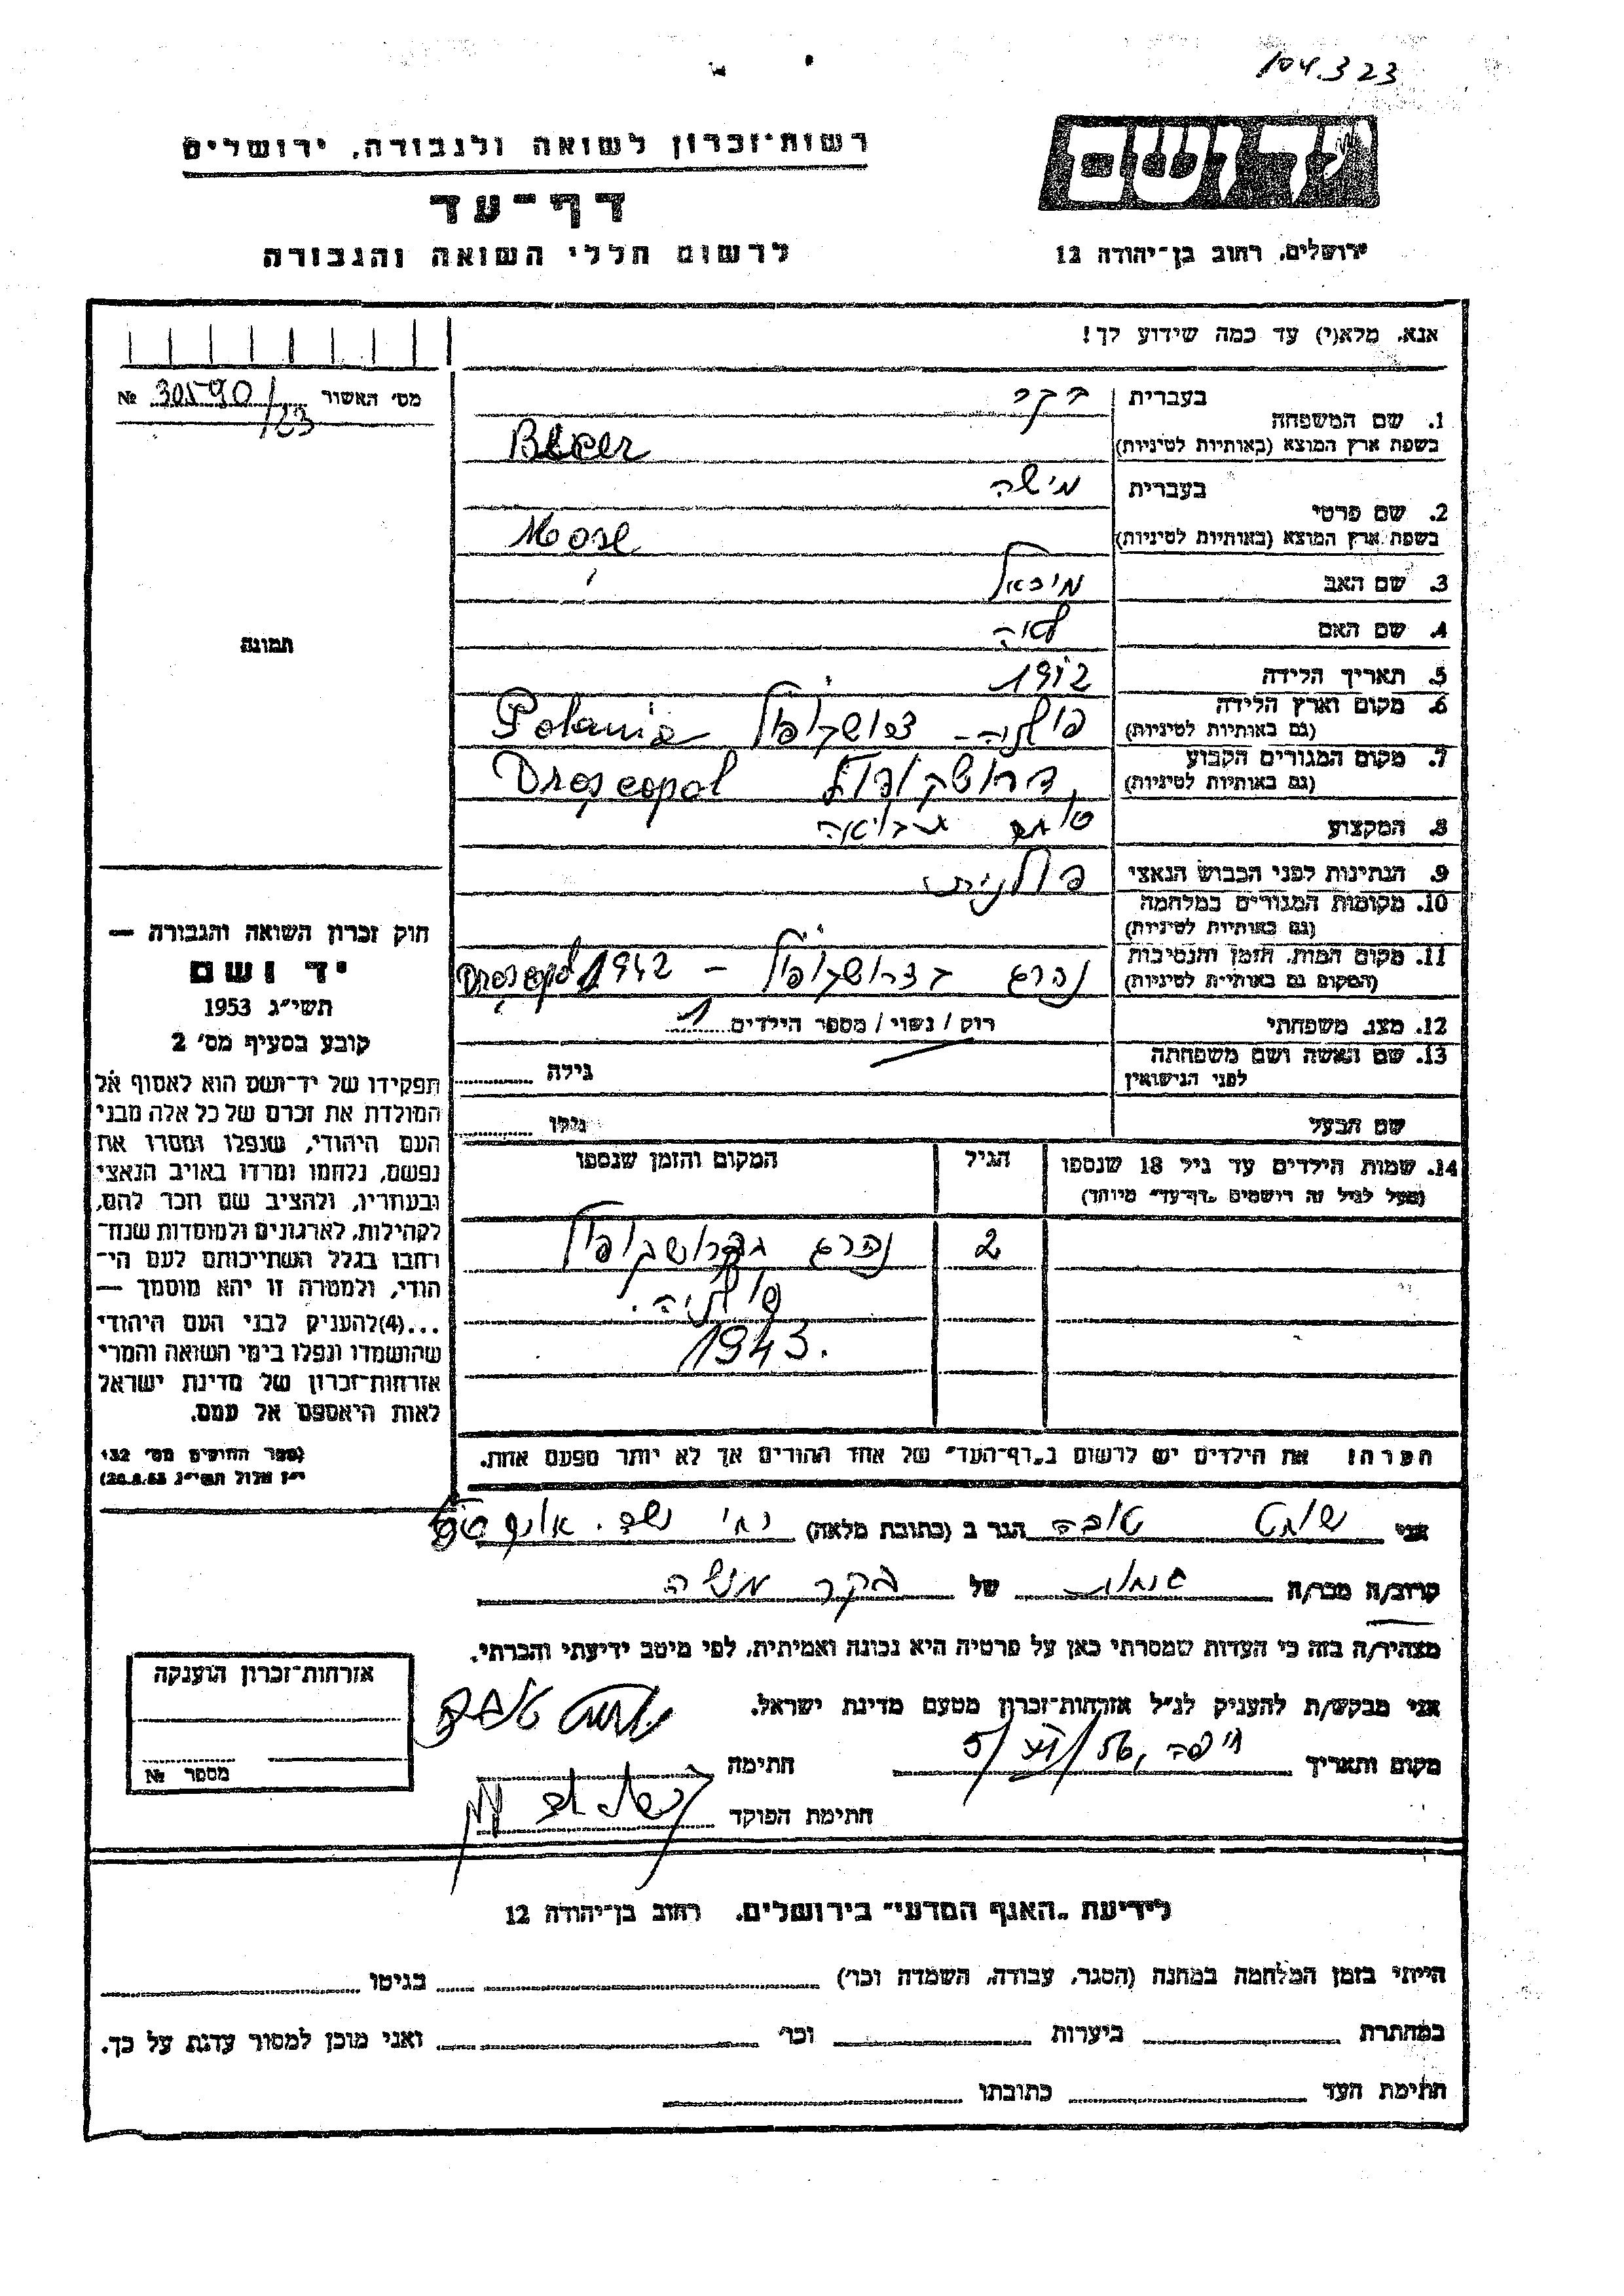 104.323
רשות־זכרון לשואה ולגבורה, ירושלים
דף־עד
לרשום חללי השואה והגבורה
יד ושם
ירושלים, רחוב בן־יהודה 12
אנא, מלא(י) עד כמה שידוע לך!
מס' האשור 30590/123 №
תמונה
1. שם המשפחה
בעברית בקר
בשפת ארץ המוצא (באותיות לטיניות) Beker
2. שם פרטי
בעברית מישה
בשפת ארץ המוצא (באותיות לטיניות) Mose
3. שם האב מיכאל
4. שם האם לאה
5. תאריך הלידה 1912
6. מקום וארץ הלידה
(גם באותיות לטיניות) פולניה - Polania
7. מקום המגורים הקבוע
(גם באותיות לטיניות) דרושקופול Droscopol
8. המקצוע
9. הנתינות לפני הכבוש הנאצי פולנית
10. מקומות המגורים במלחמה
(גם באותיות לטיניות)
11. מקום המות, הזמן והנסיבות
(המקום גם באותיות לטיניות) נהרג בדרושקופול – 1942 Droscopol
12. מצב משפחתי רוק / נשוי / מספר הילדים 1
13. שם האשה ושם משפחתה
לפני הנישואין
גילה
שם הבעל
גילו
14. שמות הילדים עד גיל 18 שנספו
(מעל לגיל זה רושמים "דף־עד" מיוחד)
הגיל
המקום והזמן שנספו
2 נהרג בדרושקופול
פולניה.
1943.
הערה! את הילדים יש לרשום ב"דף־העד" של אחד ההורים אך לא יותר מפעם אחת.
חוק זכרון השואה והגבורה —
יד ושם
תשי"ג 1953
קובע בסעיף מס' 2
תפקידו של יד־ושם הוא לאסוף אל
המולדת את זכרם של כל אלה מבני
העם היהודי, שנפלו ומסרו את
נפשם, נלחמו ומרדו באויב הנאצי
ובעוזריו, ולהציב שם וזכר להם,
לקהילות, לארגונים ולמוסדות שנח־
רחבו בגלל השתייכותם לעם הי־
הודי, ולמטרה זו יהא מוסמך —
...(4)להעניק לבני העם היהודי
שהושמדו ונפלו בימי השואה והמרי
אזרחות־זכרון של מדינת ישראל
לאות היאספם אל עמם.
(ספר החוקים מס' 132
י"ז אלול תשי"ג 28.8.53)
אני טובה הגר ב (כתובת מלאה)
קרוב/ה מכר/ה של בקר משה
מצהיר/ה בזה כי העדות שמסרתי כאן על פרטיה היא נכונה ואמיתית, לפי מיטב ידיעתי והכרתי.
אני מבקש/ת להעניק לנ"ל אזרחות־זכרון מטעם מדינת ישראל.
מקום ותאריך חיפה, חתימה
חתימת הפוקד
אזרחות־זכרון הוענקה
מספר №
לידיעת "האגף המדעי" בירושלים, רחוב בן־יהודה 12
הייתי בזמן המלחמה במחנה (הסגר, עבודה, השמדה וכו') בגיטו
במחתרת ביערות וכו' ואני מוכן למסור עדות על כך.
חתימת העד כתובתו